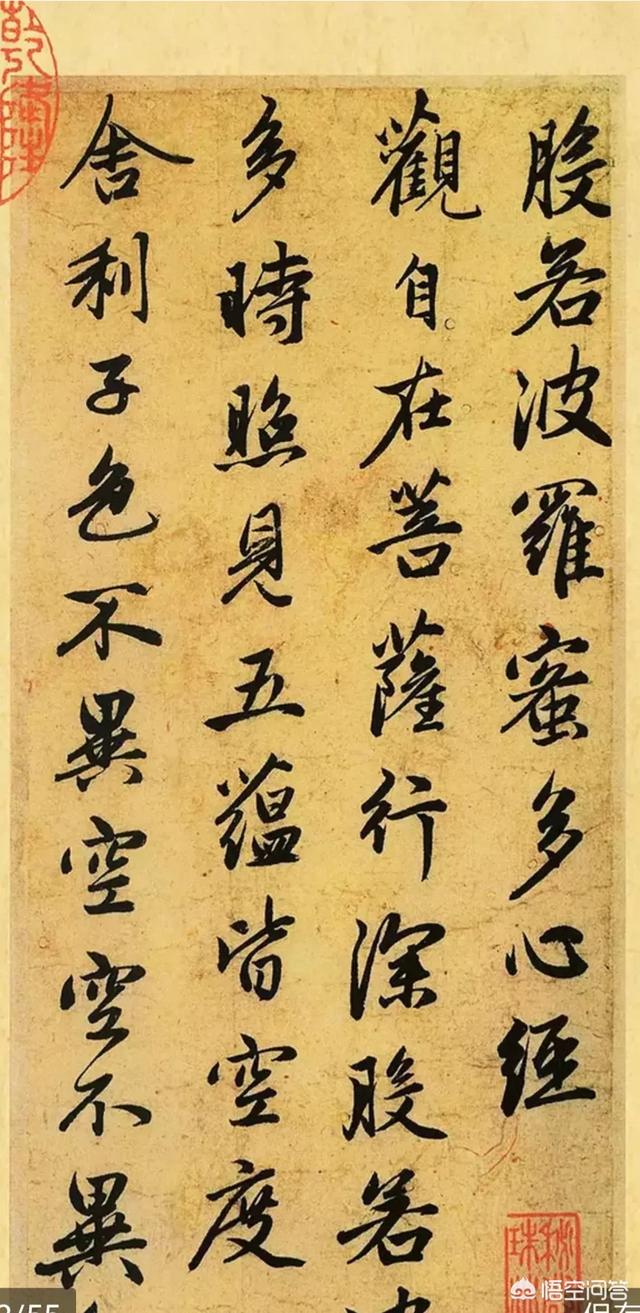 般若波羅蜜多心經
觀自在菩薩行深般若波
多時照見五蘊皆空度
舍利子色不異空空不異
/55
悟空问答